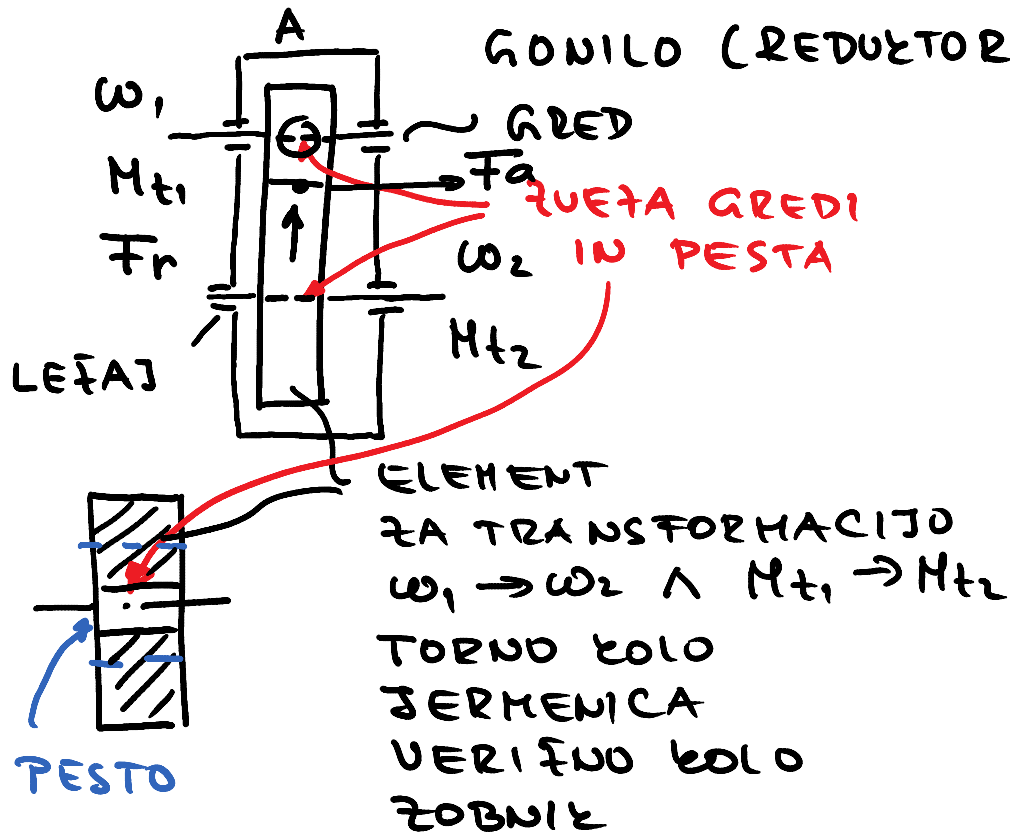 A
GONILO (REDUKTOR
ω₁
GRED
Mt₁
Fa
ZVEZA GREDI
IN PESTA
Fr
ω₂
Mt₂
LEŽAJ
ELEMENT
ZA TRANSFORMACIJO
ω₁ → ω₂ ∧ Mt₁ → Mt₂
TORNO KOLO
JERMENICA
VERIŽNO KOLO
ZOBNIK
PESTO